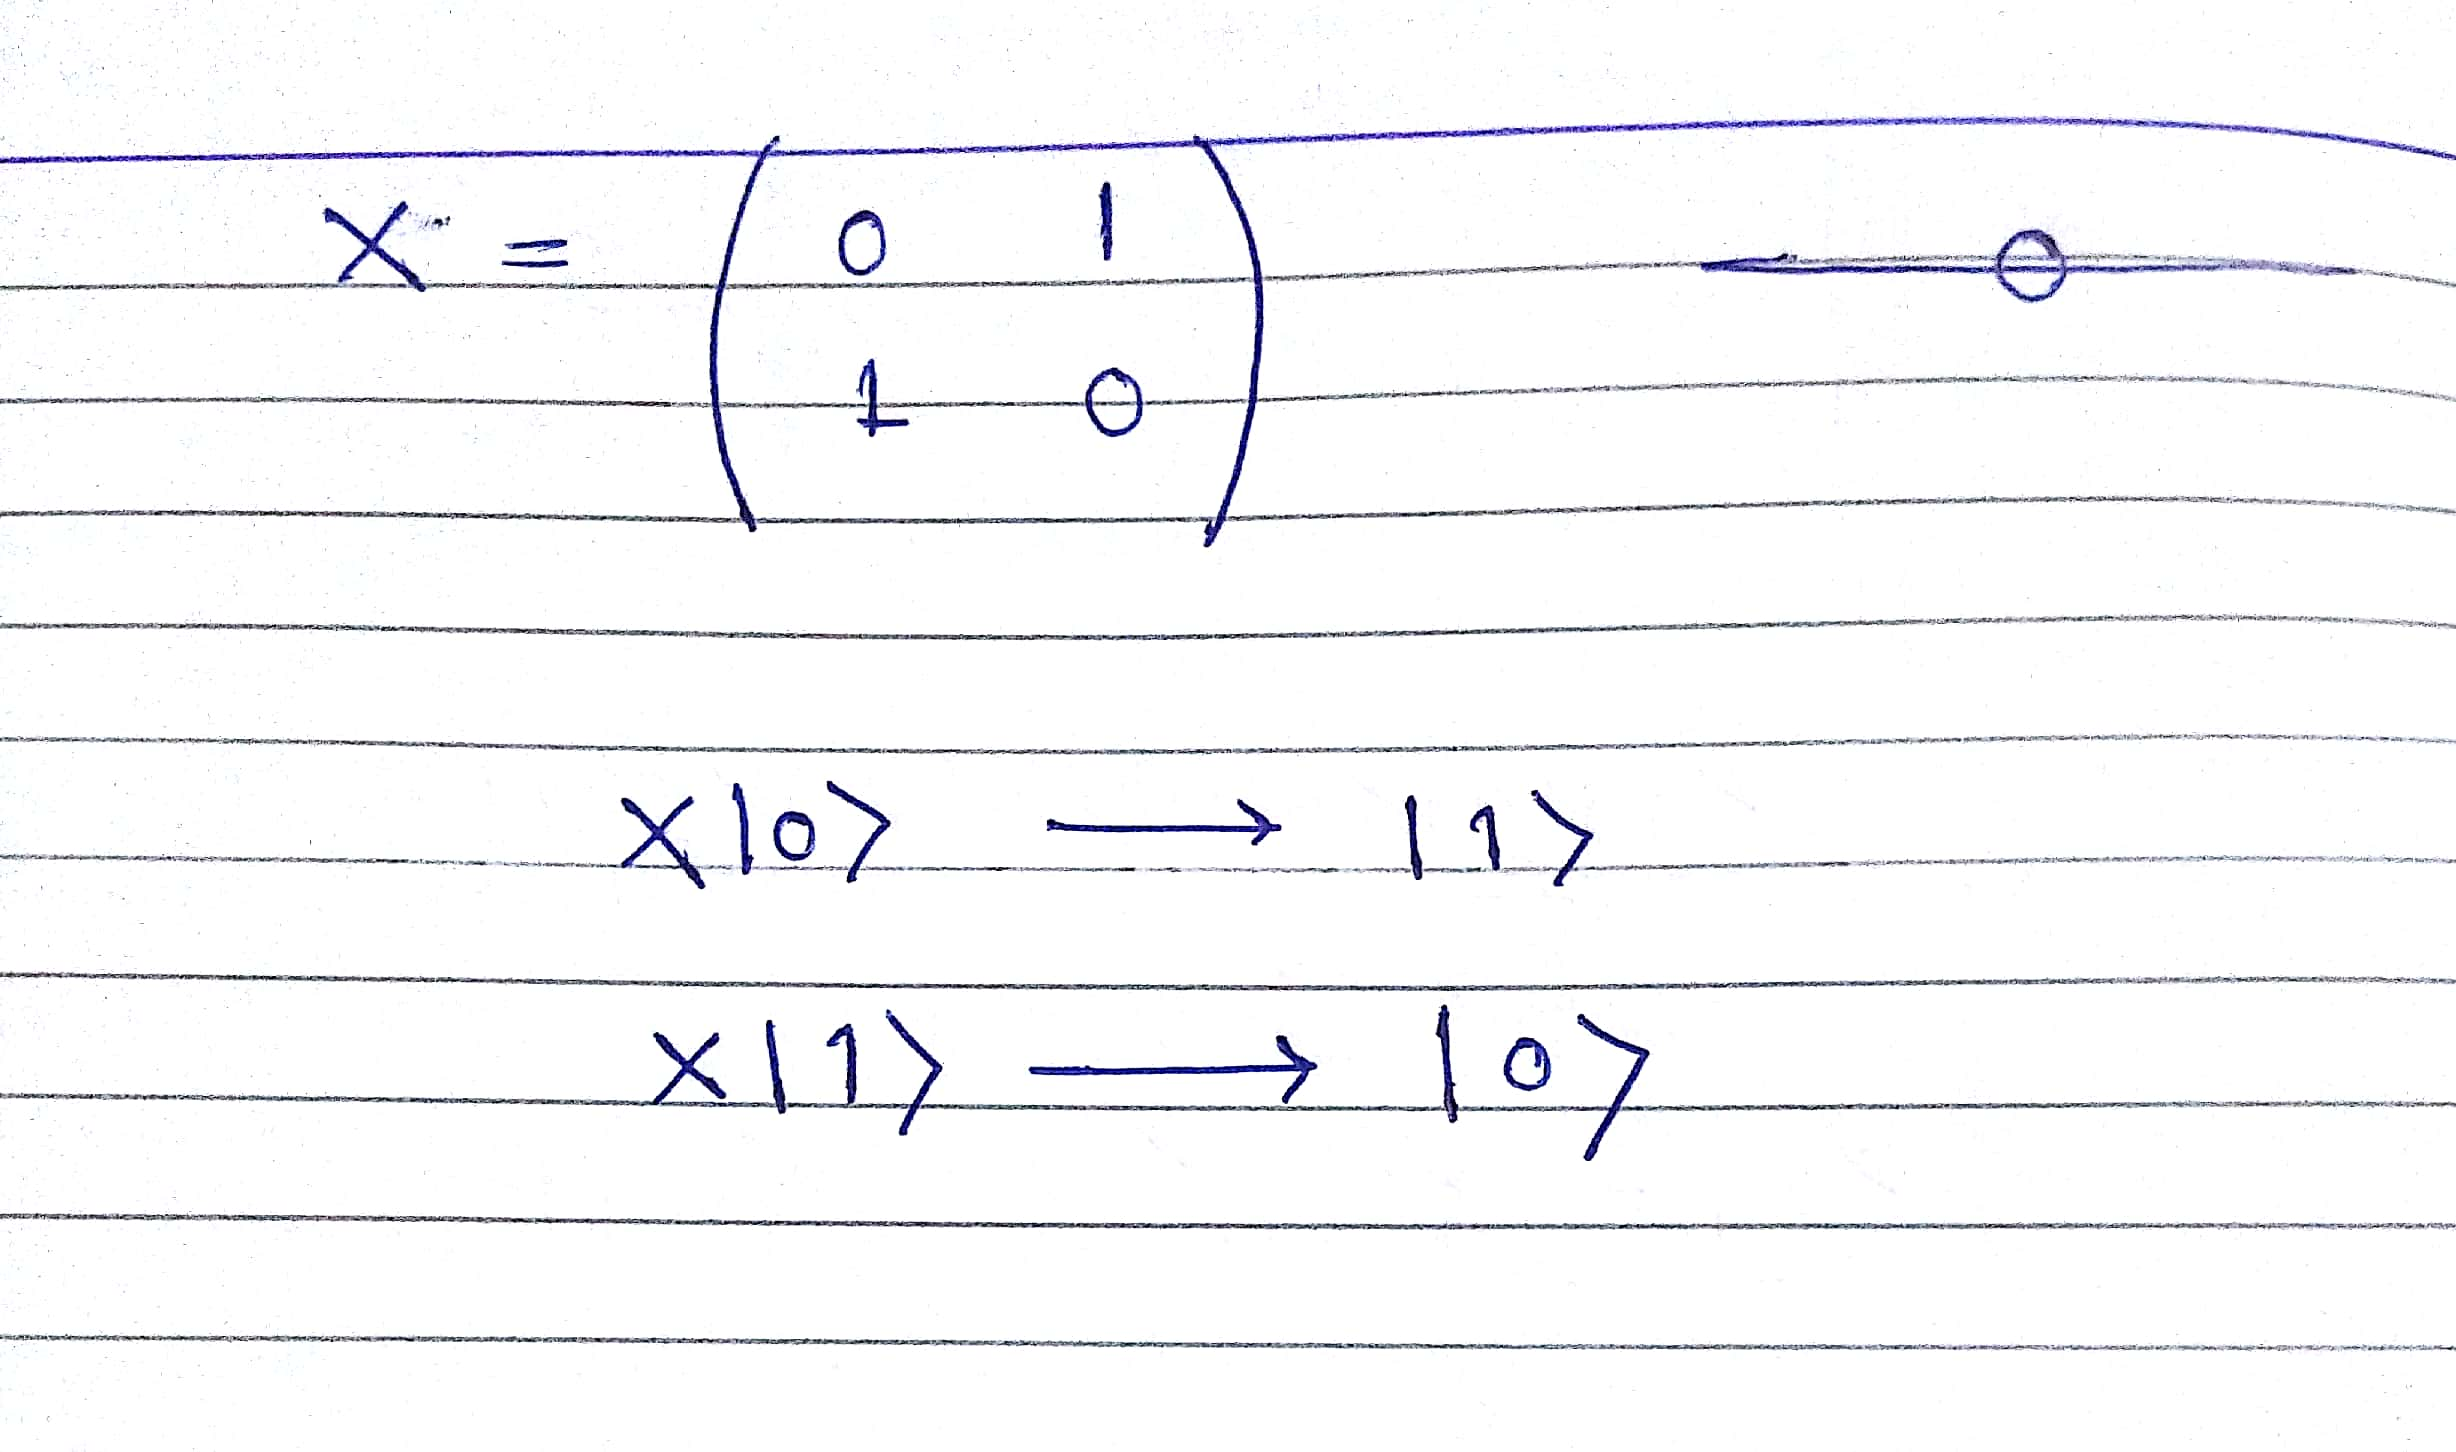 X = ( 0 1
1 0 )
X|0⟩ ⟶ |1⟩
X|1⟩ ⟶ |0⟩